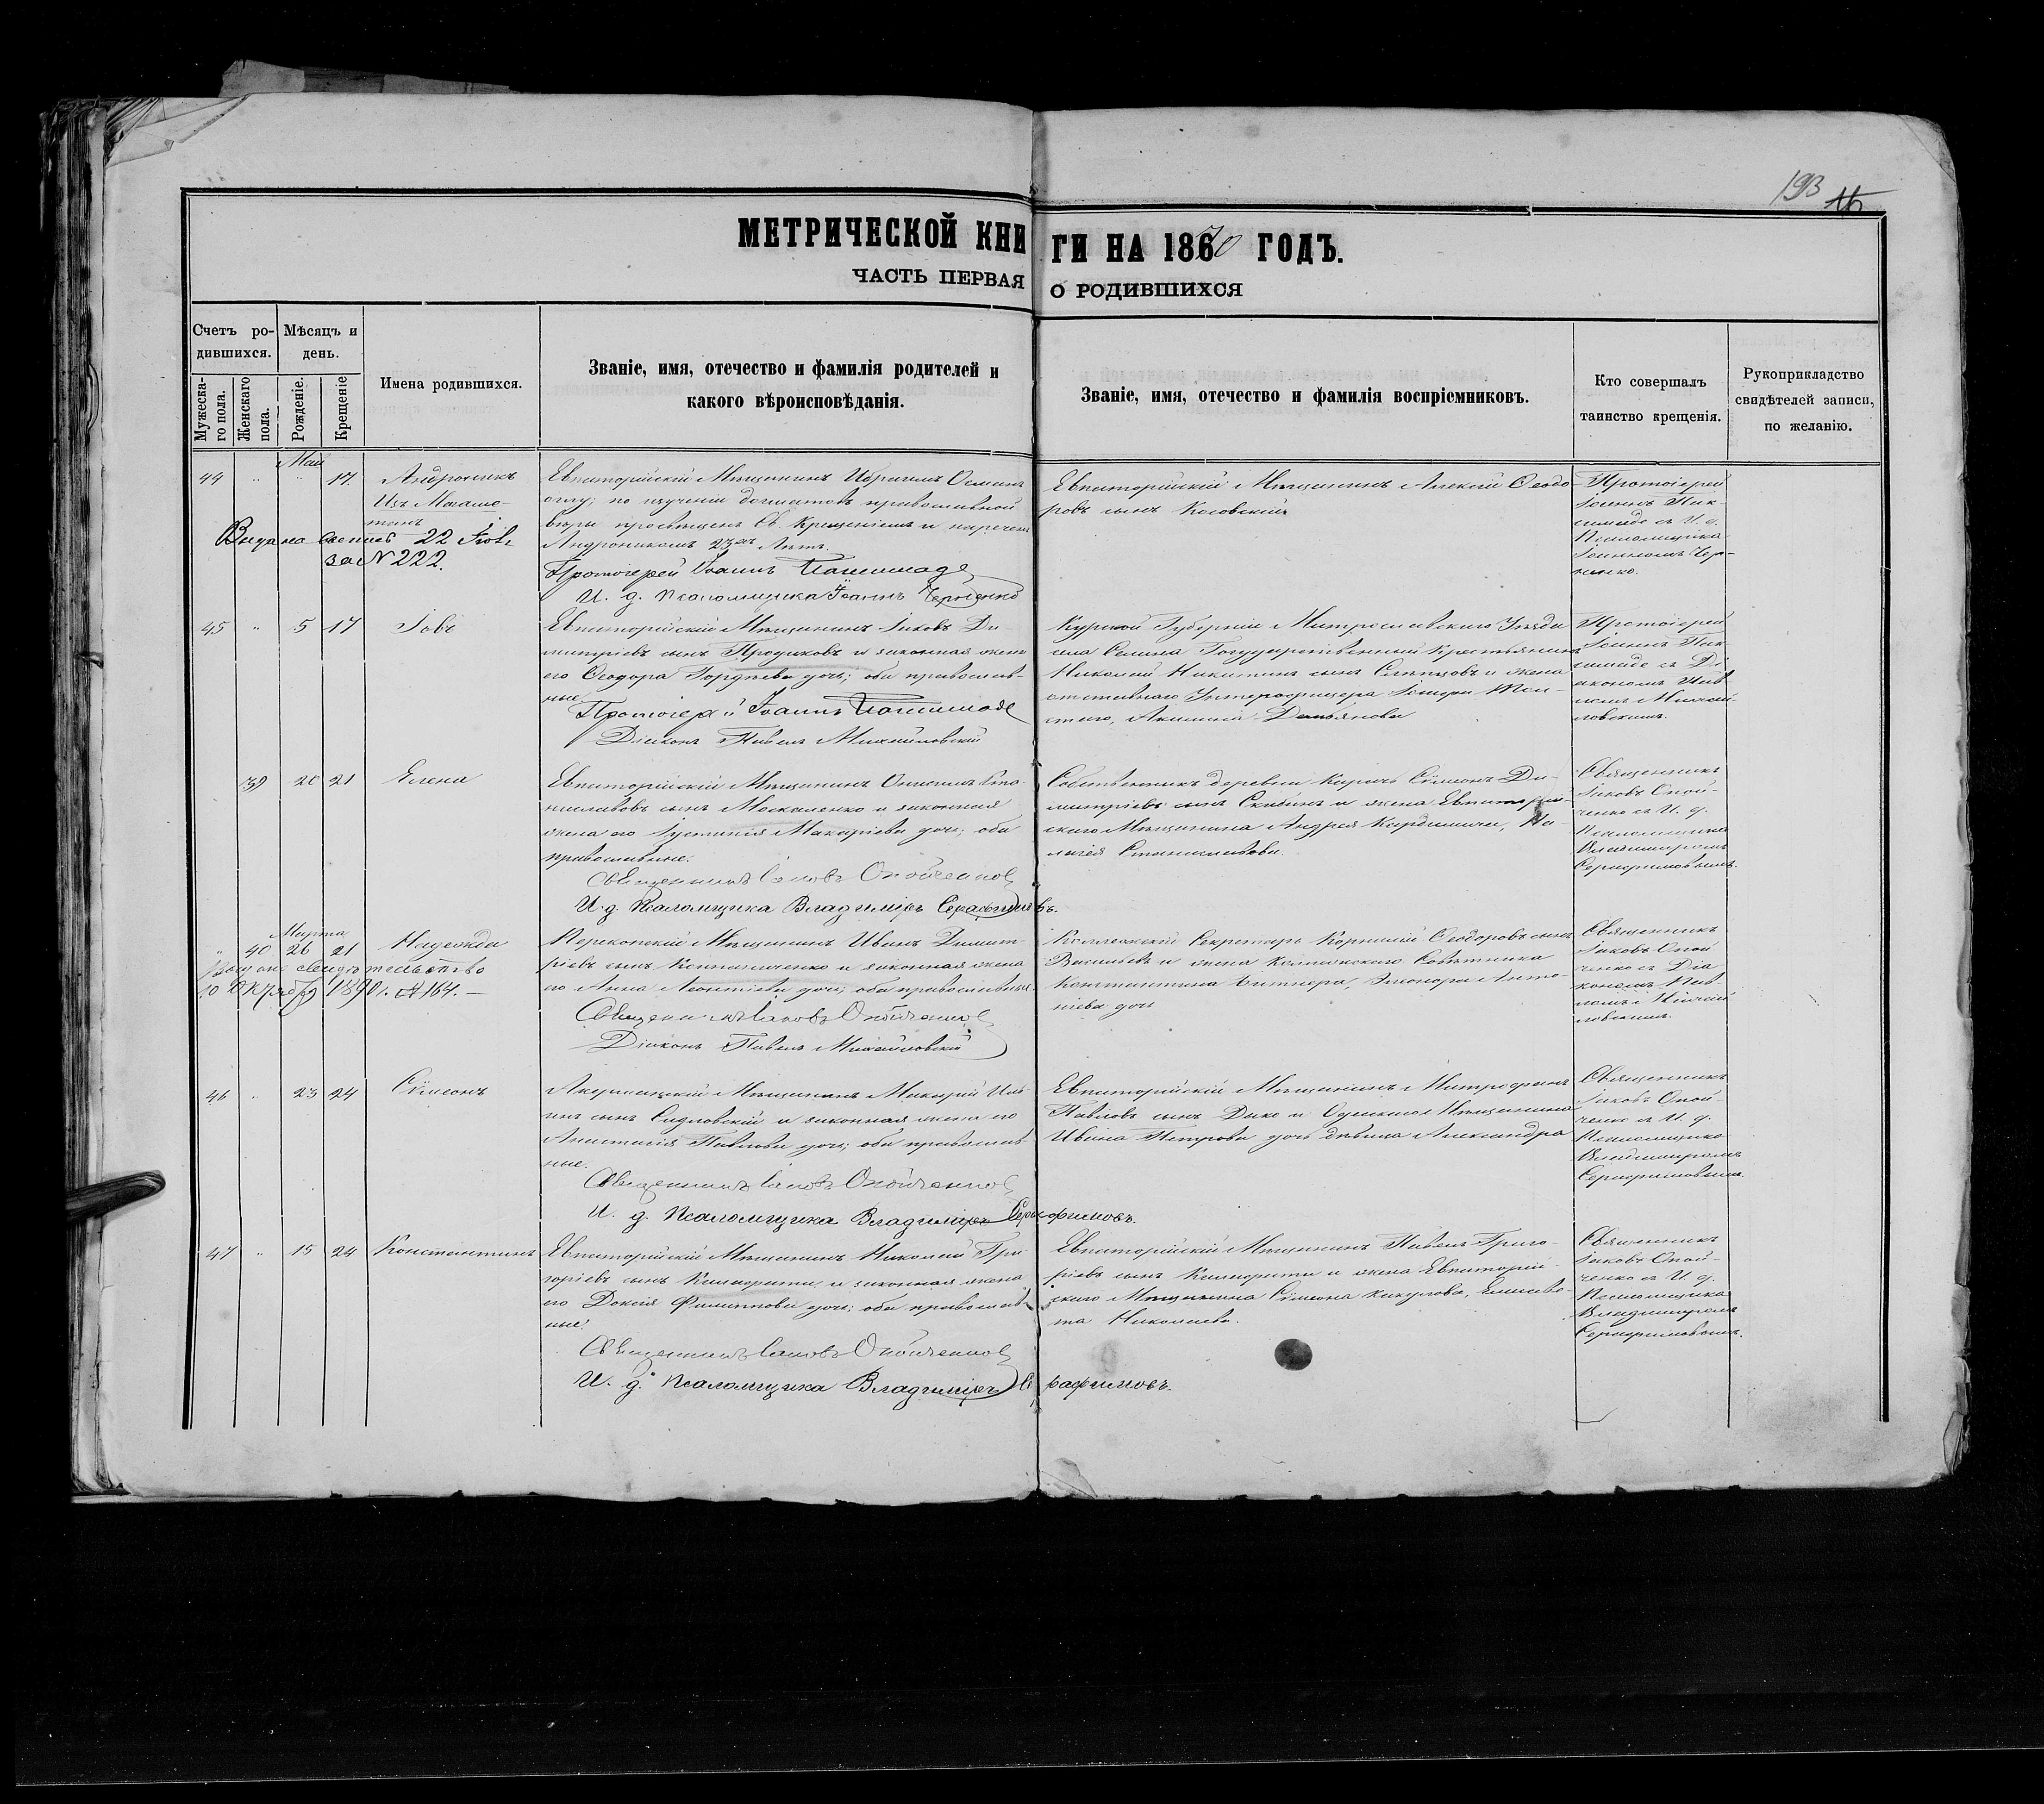 193
МЕТРИЧЕСКОЙ КНИГИ НА 1870 ГОДЪ.
ЧАСТЬ ПЕРВАЯ О РОДИВШИХСЯ
Счетъ родившихся.
Мужескаго пола.
Женскаго пола.
Мѣсяцъ и день.
Рожденіе.
Крещеніе
Имена родившихся.
Званіе, имя, отечество и фамилія родителей и
какого вѣроисповѣданія.
Званіе, имя, отечество и фамилія воспріемниковъ.
Кто совершалъ
таинство крещенія.
Рукоприкладство
свидѣтелей записи,
по желанію.
Май
44 " " 17. Андроникъ
Изъ Магоме-
танъ
22
за N 222.
Евпаторійскій Мѣщанинъ Ибрагимъ Османъ
оглу; по изученіи догматовъ православной
вѣры просвѣщенъ Св. Крещеніемъ и нареченъ
Андроникомъ 23хъ Лѣтъ.
Протоіерей Іоаннъ
И. д. Псаломщика Іоаннъ Черненко
Евпаторійскій Мѣщанинъ Алексій Ѳеодо
ровъ сынъ Косовскій
Протоіерей
Іоаннъ
съ И. д.
Псаломщика
Іоанномъ Чер-
ненко.
45 " 5 17 Іовъ
Евпаторійскій Мѣщанинъ Іаковъ Ди
митріевъ сынъ и законная жена
его Ѳеодора Гордѣева дочь; оба православ-
ные.
Протоіерей Іоаннъ
Діаконъ Павелъ Михайловскій
Курской Губерніи Уѣзда
села Государственный крестьянинъ
Николай Никитинъ сынъ Слѣпцовъ и жена
отставнаго Унтерофицера
Акилина Демьянова
Протоіерей
Іоаннъ
съ Ді-
акономъ Пав
ломъ Михай-
ловскимъ.
39 20 21 Елена
Евпаторійскій Мѣщанинъ
сынъ Москаленко и законная
жена его Іустинія Макаріева дочь; оба
православные.
Священникъ Іаковъ Опойченко
И. д. Псаломщика Владиміръ Серафимовъ.
Собственникъ деревни Сѵмеонъ Ди-
митріевъ сынъ и жена Евпаторій-
скаго Мѣщанина Андрея Пе-
лагея Станиславова.
Священникъ
Іаковъ Опой-
ченко съ И. д.
Псаломщика
Владиміромъ
Серафимовымъ.
Марта
" 40 26 21 Надежда
свидѣтельство
10 Октября 1890 г. № 164. —
Перекопскій Мѣщанинъ Иванъ Димит-
ріевъ сынъ и законная жена
его Анна Леонтіева дочь; оба православные
Священникъ Іаковъ Опойченко
Діаконъ Павелъ Михайловскій
Коллежскій Секретарь Корнилій Ѳеодоровъ сынъ
Васильевъ и жена Коллежскаго Совѣтника
Константина Битнера, Элеонора Анто-
ніева дочь
Священникъ
Іаковъ Опой
ченко съ Діа-
кономъ Пав-
ломъ Михай
ловскимъ.
46 " 23 24 Сѵмеонъ
Мѣщанинъ Макарій Иль
инъ сынъ Садловскій и законная жена его
Анастасія Павлова дочь; оба православ-
ные.
Священникъ Іаковъ Опойченко
И. д. Псаломщика Владиміръ Серафимовъ.
Евпаторійскій Мѣщанинъ Митрофанъ
Павловъ сынъ Дике и Одесскаго Мѣщанина
Ивана Петрова дочь дѣвица Александра
Священникъ
Іаковъ Опой-
ченко съ И. д.
Псаломщика
Владиміромъ
Серафимовымъ.
47 " 15 24 Константинъ
Евпаторійскій Мѣщанинъ Николай Гри
горіевъ сынъ и законная жена
его Доксія Филиппова дочь; оба православ-
ные.
Священникъ Іаковъ Опойченко
И. д. Псаломщика Владиміръ Серафимовъ.
Евпаторійскій Мѣщанинъ Павелъ Григо-
ріевъ сынъ и жена Евпаторій-
скаго Мѣщанина Сѵмеона Какулова, Елисаве-
та Николаева.
Священникъ
Іаковъ Опой-
ченко съ И. д.
Псаломщика
Владиміромъ
Серафимовымъ.